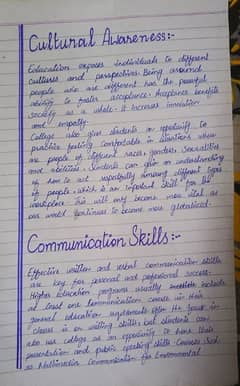 Cultural Awareness:-
Education exposes individuals to different
cultures and perspectives. Being around
people who are different has the powerful
ability to foster acceptance. Acceptance benefits
society as a whole. It increases innovation
and empathy.
College also give students an opportunity to
practice feeling comfortable in situations where
are people of different races, genders, sexualities
and abilities. Students can gain an understanding
of how to act respectfully among different types
of people, which is an important skill for the
workplace. This will only become more vital as
our world continues to become more globalized.
Communication Skills:-
Effective written and verbal communication skills
are key for personal and professional success.
Higher education programs usually include
at least one communication course in their
general education requirements often the focus in
classes is on writing skills but students can
also use college as an opportunity to hone their
presentation and public speaking skills. Courses such
as Multimedia Communication for